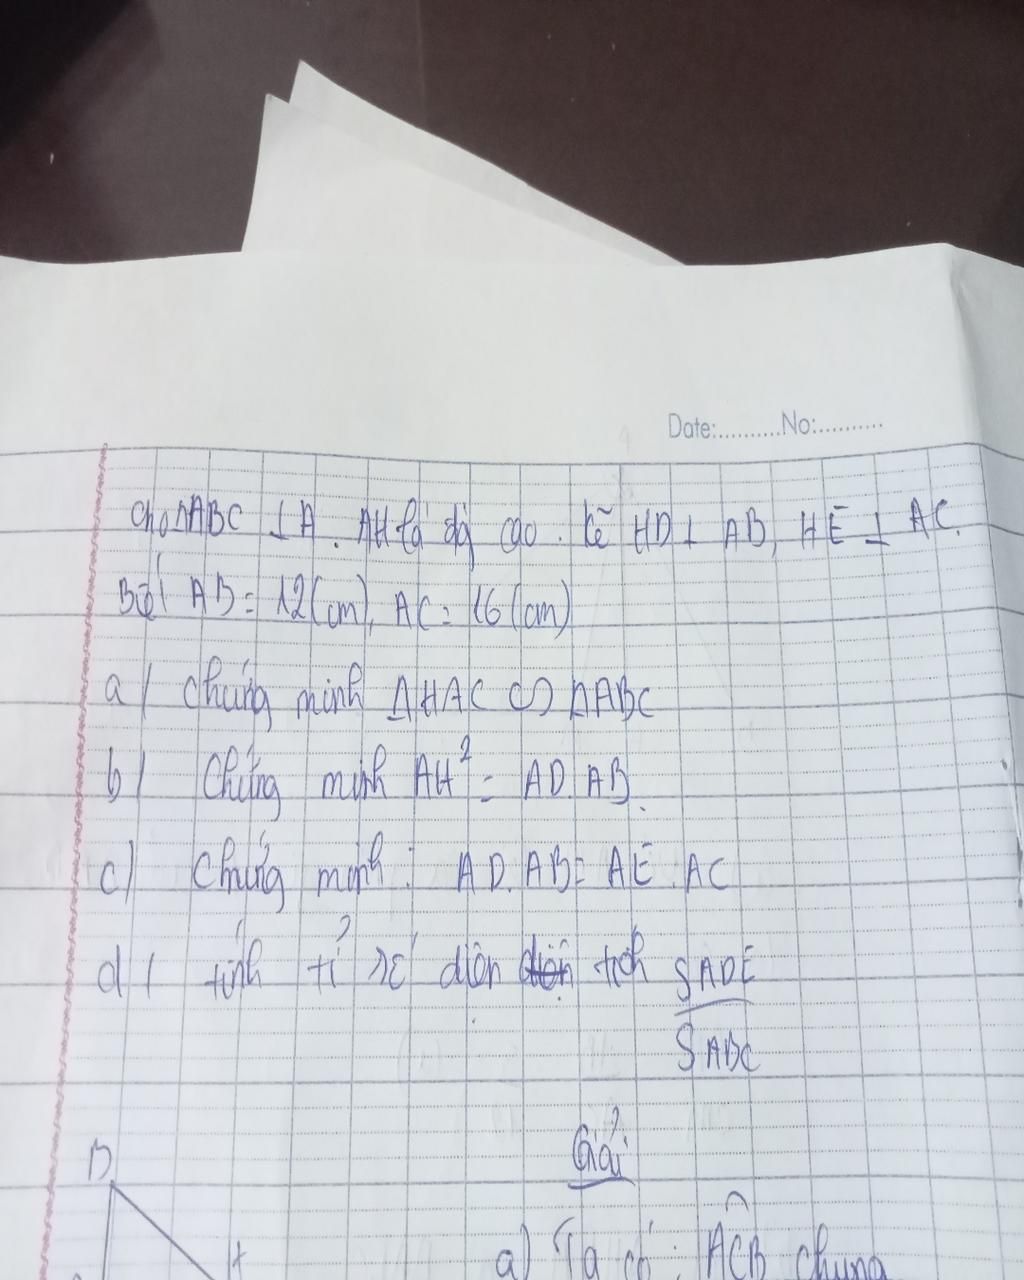 Date:..........No:..........
Cho ΔABC ⊥ A. AH là đg cao. kẽ HD ⊥ AB, HE ⊥ AC.
Biết AB = 12 (cm), AC = 16 (cm)
a/ chứng minh ΔHAC ∽ ΔABC
b/ Chứng minh AH² = AD.AB.
c) Chứng minh: AD.AB = AE.AC
d/ tính tỉ số diện tích SADE/SABC
Giải
B
H
a) Ta có: ACB chung